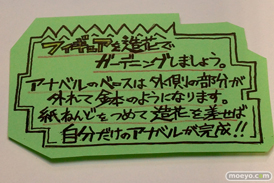 フィギュアを造花で
ガーデニングしましょう。
アナベルのベースは外側の部分が
外れて鉢本のようになります。
紙ねんどをつめて造花を差せば
自分だけのアナベルが完成!!
moeyo.com